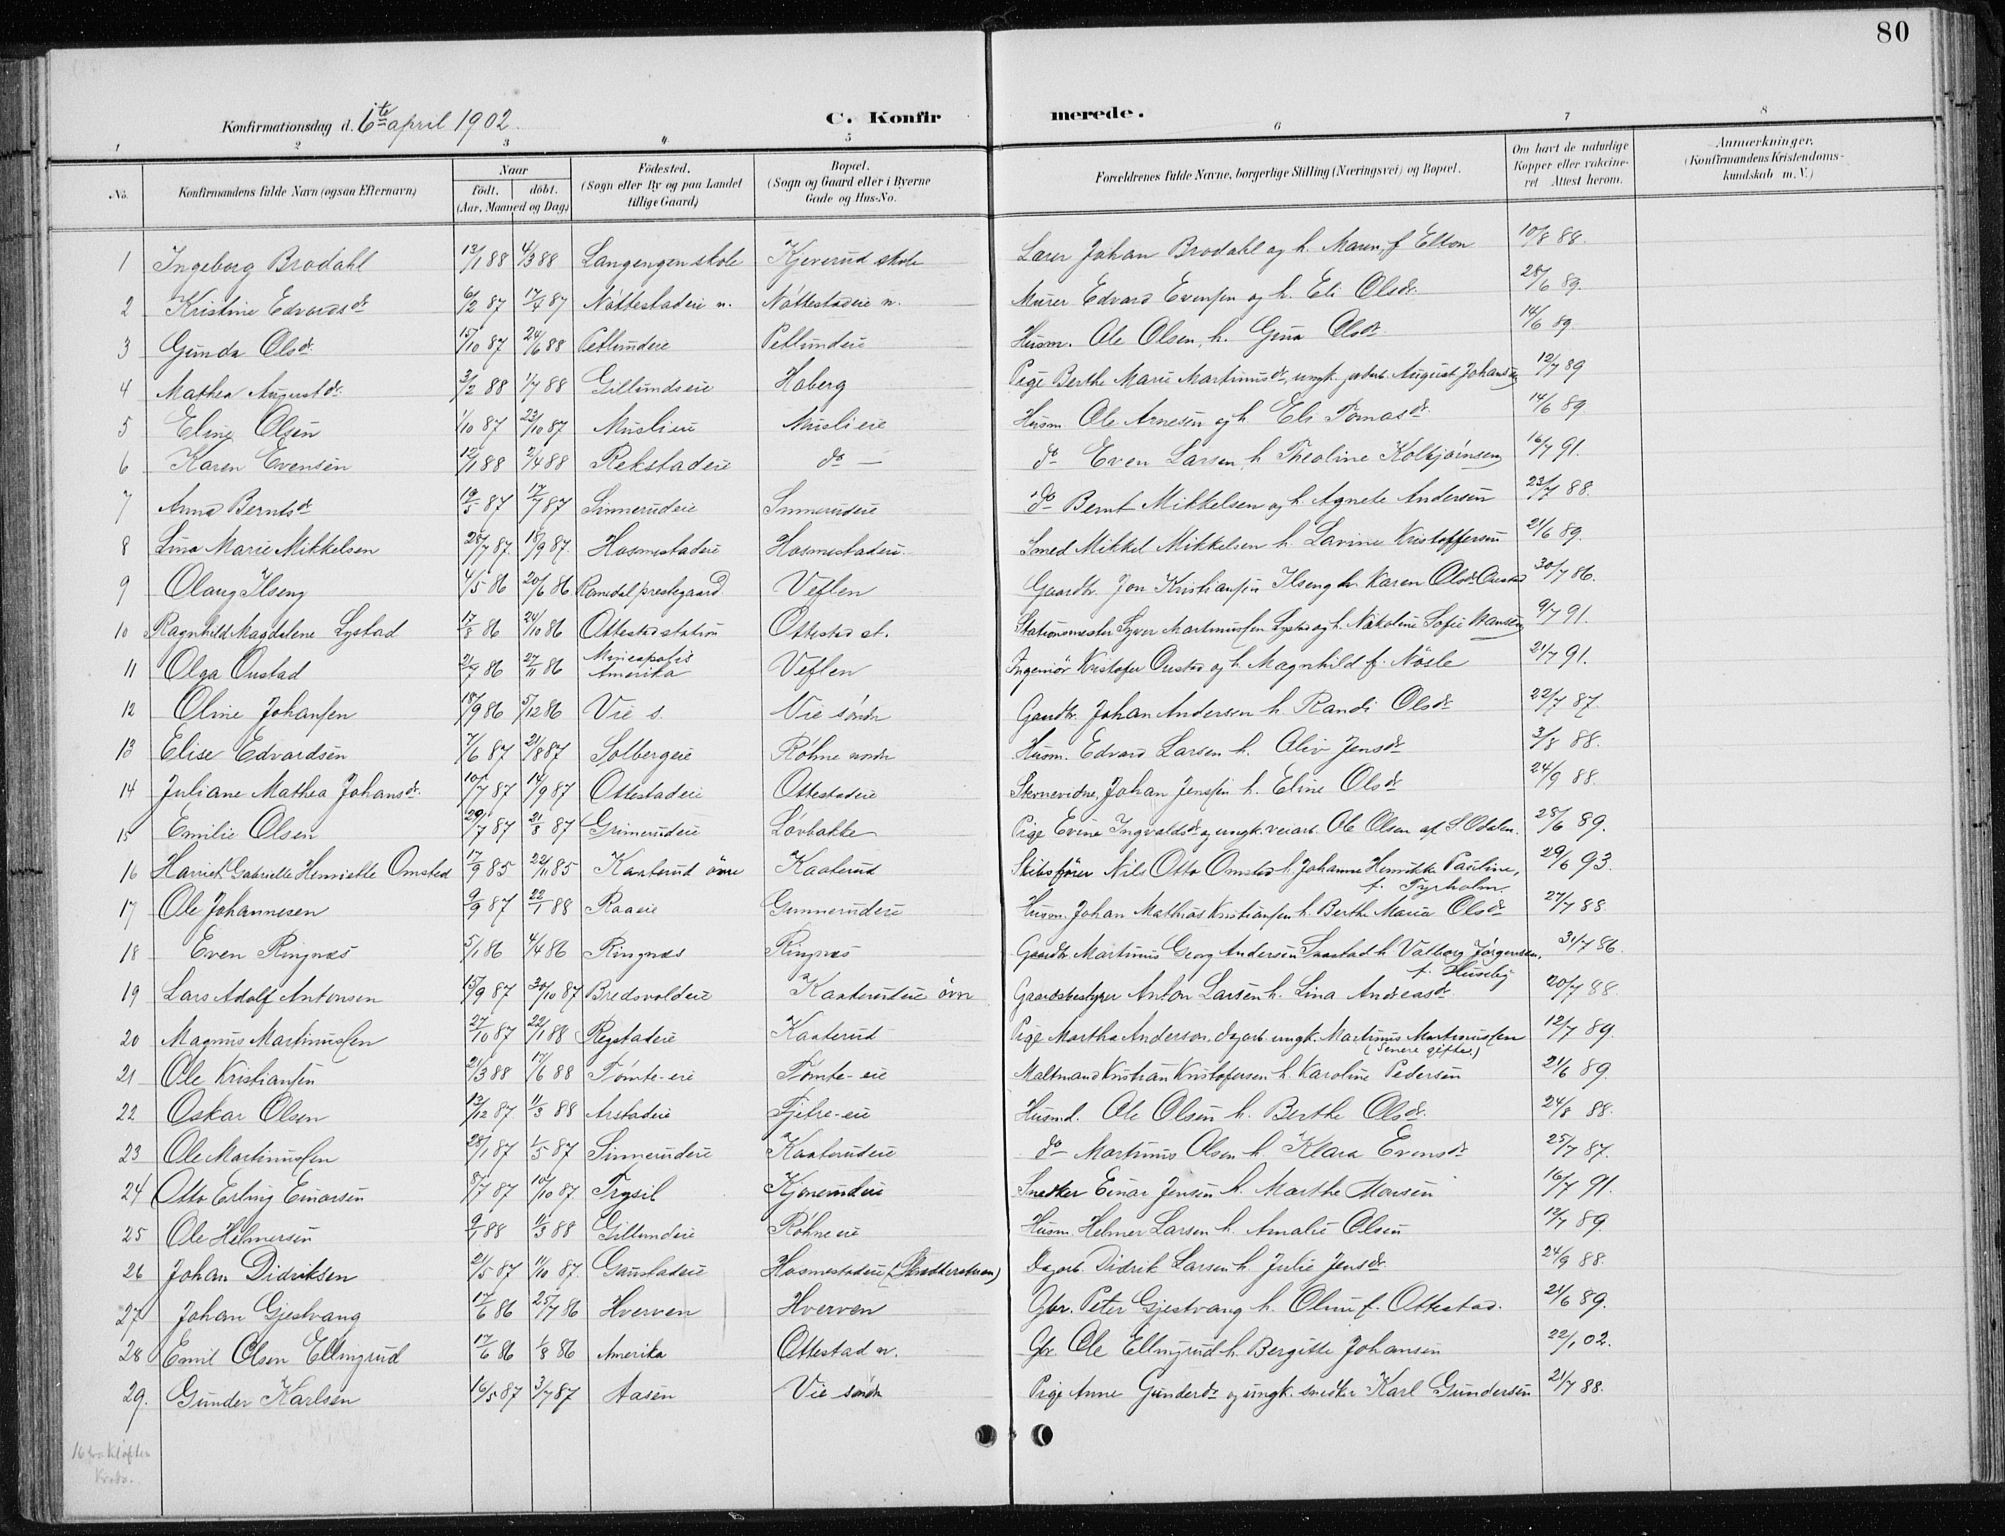 80
Konfirmationsdag d. 6te april 1902. C. Konfirmerede.
1 2 3 4 5 6 7 8
No. Konfirmandens fulde Navn (ogsaa Efternavn) Naar født, døbt. (Aar, Maaned og Dag) Födested. (Sogn eller By og paa Landet tillige Gaard) Bopæl. (Sogn og Gaard eller i Byerne Gade og Hus-No. Forældrenes fulde Navne, borgerlige Stilling (Næringsvei) og Bopæl. Om havt de naturlige Kopper eller vakcineret Attest herom. Anmærkninger. (Konfirmandens Kristendomskundskab m. V.)
1 Ingeborg Brodahl 13/1 88 4/3 88 Langengen skole Kjeverud skole Lærer Johan Brodahl og h. Maren f. Elton 10/8 88.
2 Kristine Edvardsdr 6/2 87 17/4 87 Nöttestadeie n. Nöttestadeie n. Murer Edvard Evensen og h. Eli Olsdr. 28/6 89.
3 Gunda Olsdr. 15/10 87 24/6 88 Petlundeie Petlundeie Husm. Ole Olsen, h. Gina Olsdr. 14/6 89.
4 Mathea Augustdr. 3/2 88 1/7 88 Gillundseie Hoberg Pige Berthe Marie Martinusdr, ungk. August Johansen 12/7 89
5 Eline Olsen 1/10 87 23/10 87 Muslieie Muslieie Husm. Ole Arnesen og h. Eli Tomasdr. 14/6 89.
6 Karen Evensen 12/1 88 2/4 88 Rekstadeie do — do Even Larsen h. Theoline Kolbjörnsen 16/7 91.
7 Anna Berntsdr 19/5 87 17/7 87 Sinnerudeie Sinnerudeie do Bernt Mikkelsen og h. Agnete Andersen 23/7 88.
8 Lina Marie Mikkelsen 28/7 87. 18/9 87. Hosmestadeie Hosmestadeie. Smed Mikkel Mikkelsen h. Lavine Kristoffersen 21/6 89.
9 Olaug Ilseng 4/5 86 20/6 86 Romedal prestegaard Veflen Gaardbr. Jon Kristiansen Ilseng h. Karen Olsdr. Onstad 30/7 86.
10 Ragnhild Magdalene Lystad 17/8 86 24/10 86 Ottestad station Ottestad st. Stationsmester Syver Martinussen Lystad og h. Nikoline Sofie Hansen 9/7 91.
11 Olga Onstad 2/7 86 27/11 86 Mineapolis Amerika Veflen Ingeniör Kristofer Onstad og h. Magnhild f. Nösle 21/7 91.
12 Oline Johansen 18/9 86 5/12 86 Vie s. Vie söndr Gaardbr. Johan Andersen h. Randi Olsdr 22/7 87.
13 Elise Edvardsen 7/6 87 21/8 87 Solbergeie Röhne nordr Husm. Edvard Larsen h. Oliv Jensdr 3/8 88.
14 Juliane Mathea Johansdr. 10/7 87 14/9 87 Ottestadeie Ottestadeie Johan Jensen h. Eline Olsdr 24/9 88.
15 Emilie Olsen 29/7 87 21/8 87 Grimerudeie Lövbakke Pige Evine Ingvaldsdr og ungk. veiarb. Ole Olsen af S Odalen. 28/6 89.
16 Harriet Gabrielle Henriette Omsted 17/9 85 22/11 85 Kaaterud övre Kaaterud Skibsförer Nils Otto Omsted h. Johanne Henrikke Pauline, f. Tyrholm. 29/6 93.
17 Ole Johannesen 9/9 87 22/1 88 Raaeie Gunnerudeie Husm. Johan Mathias Kristiansen h. Berthe Maria Olsdr 27/7 88.
18 Even Ringnæs 5/1 86 4/4 86 Ringnæs Ringnæs Gaardbr. Martinus Georg Andersen Snarstad h. Valborg Jörgensen, f. Huseby 31/7 86.
19 Lars Adolf Antonsen 15/9 87 30/10 87 Bredsvoldeie Kaaterudeie övre Gaardsbestyrer Anton Larsen h. Lina Andreasdr 20/7 88.
20 Magnus Martinussen 27/10 87 22/1 88 Rystadeie Kaaterud Pige Martha Anderson, dagarb. ungk. Martinus Martinussen (senere gifted) 12/7 89.
21 Ole Kristiansen 21/3 88 17/6 88 Tömte-eie Tömte-eie Maltmand Kristian Kristofersen h. Karoline Pedersen 21/6 89.
22 Oskar Olsen 13/12 87 11/3 88 Arstadeie Fjetre-eie Husmd. Ole Olsen h. Berthe Olsdr. 24/8 88.
23 Ole Martinussen 28/1 87 1/5 87 Sinnerudeie Kaaterudeie do Martinus Olsen h. Klara Evensdr 25/7 87.
24 Otto Erling Einarsen 8/7 87 10/10 87 Trysil Kjönerudeie Snedker Einar Jensen h. Marthe Monsen 16/7 91.
25 Ole Helmersen 9/1 88 1/3 88 Gillundeie Röhne eie Husm. Helmer Larsen h. Amalie Olsen 12/7 89.
26 Johan Didriksen 2/5 87 1/10 87. Gaustadeie Hosmestadeie (Skrædderstuen) Dagarb. Didrik Larsen h. Julie Jensdr. 24/9 88.
27 Johan Gjestvang 17/6 86 25/7 86 Hverven Hverven Gbr. Peter Gjestvang h. Oline f. Ottestad. 21/6 89.
28 Emil Olsen Ellingrud 17/6 86 1/8 86 Amerika Ottestad n. Gbr. Ole Ellingrud h. Bergitte Johansen 22/1 02.
29. Gunder Karlsen 16/5 87 3/7 87 Aasen Vie söndr Pige Anne Gundersdr og ungk. snedker Karl Gundersen 21/7 88.
16 fra Kloften